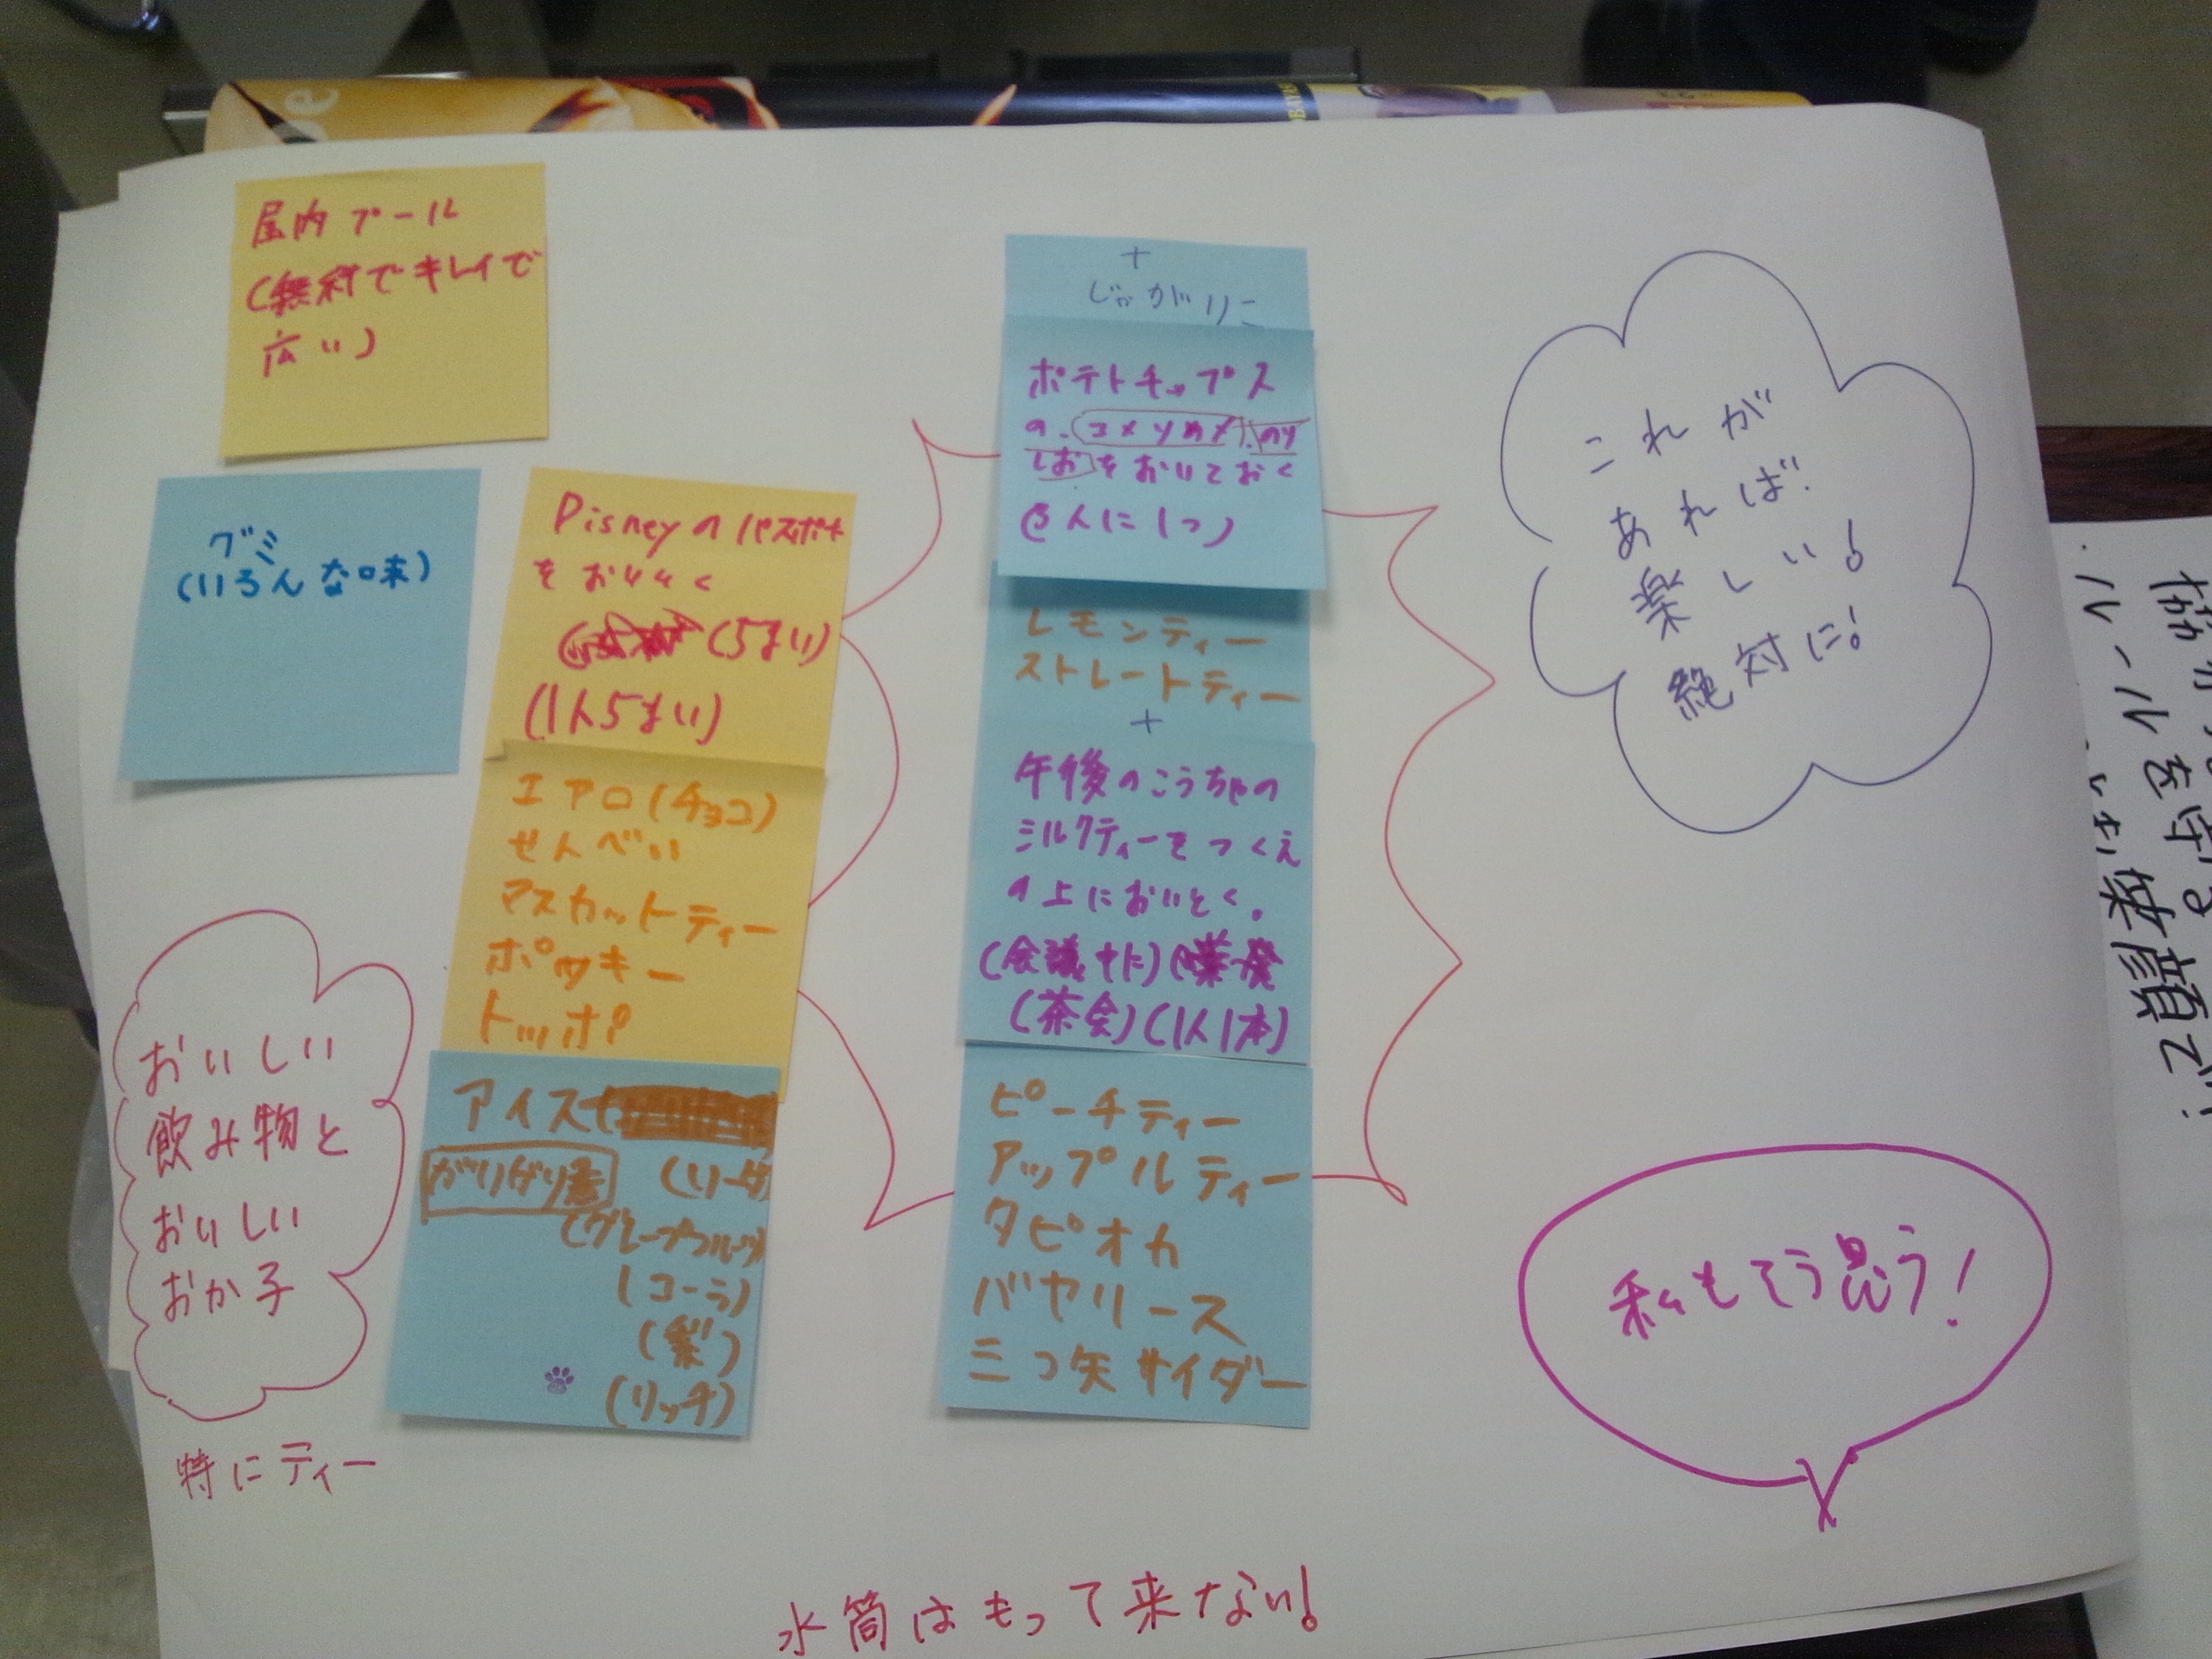 屋内プール
(無料でキレイで
広い)
グミ
(いろんな味)
Disneyのパスポート
をおいとく
(5まい)
(1人5まい)
エアロ(チョコ)
せんべい
マスカットティー
ポッキー
トッポ
アイス(
ガリガリ君
(ソーダ)
(グレープフルーツ)
(コーラ)
(梨)
(リッチ)
おいしい
飲み物と
おいしい
おか子
特にティー
+
じゃがりこ
ポテトチップス
の、コンソメ
のりしおをおいておく
人に1つ)
レモンティー
ストレートティー
+
午後のこうちゃの
ミルクティーをつくえ
の上においとく。
(会議中に)
(茶会)(1人1本)
ピーチティー
アップルティー
タピオカ
バヤリース
三つ矢サイダー
これが
あれば
楽しい!
絶対に!
私もそう思う!
水筒はもって来ない!
ルールを守る
笑顔で!!